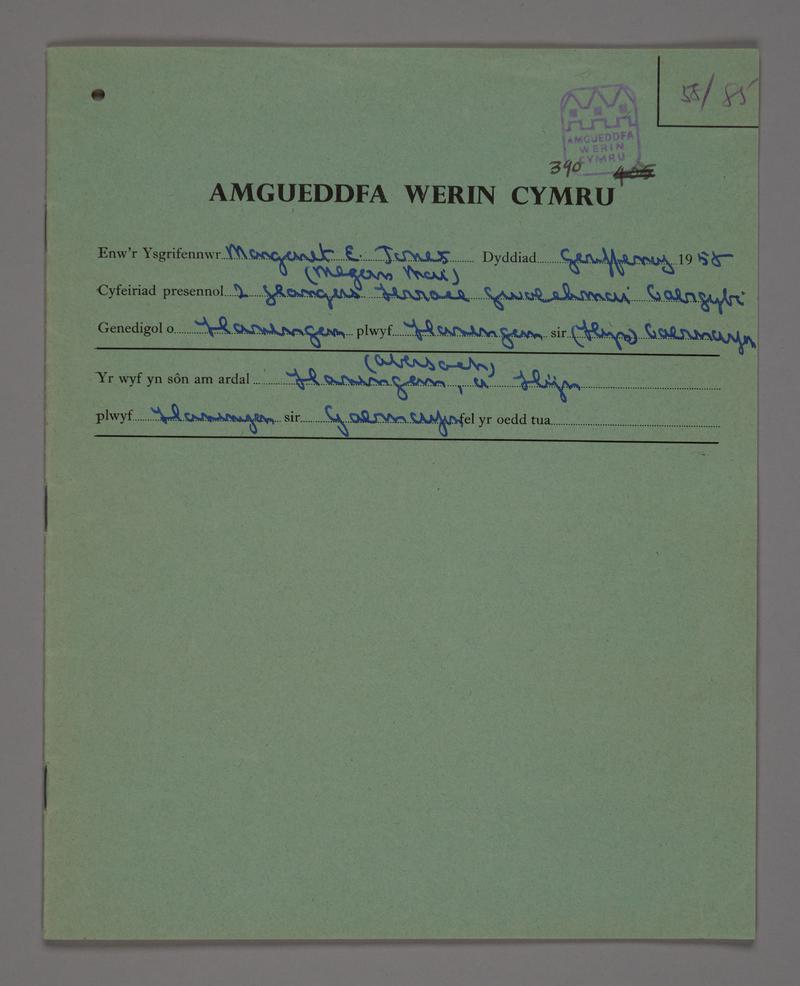 58/85
AMGUEDDFA
WERIN
CYMRU
390 405
AMGUEDDFA WERIN CYMRU
Enw'r Ysgrifennwr Margaret E. Jones Dyddiad Gorffennaf 1958
(Megan Mai)
Cyfeiriad presennol 2 Terrace Gwalchmai Caergybi
Genedigol o Llaningan plwyf Llaningan sir (Llŷn) Caernarfon
(Abersoch)
Yr wyf yn sôn am ardal Llaningan, a Llŷn
plwyf Llaningan sir Gaernarfon fel yr oedd tua